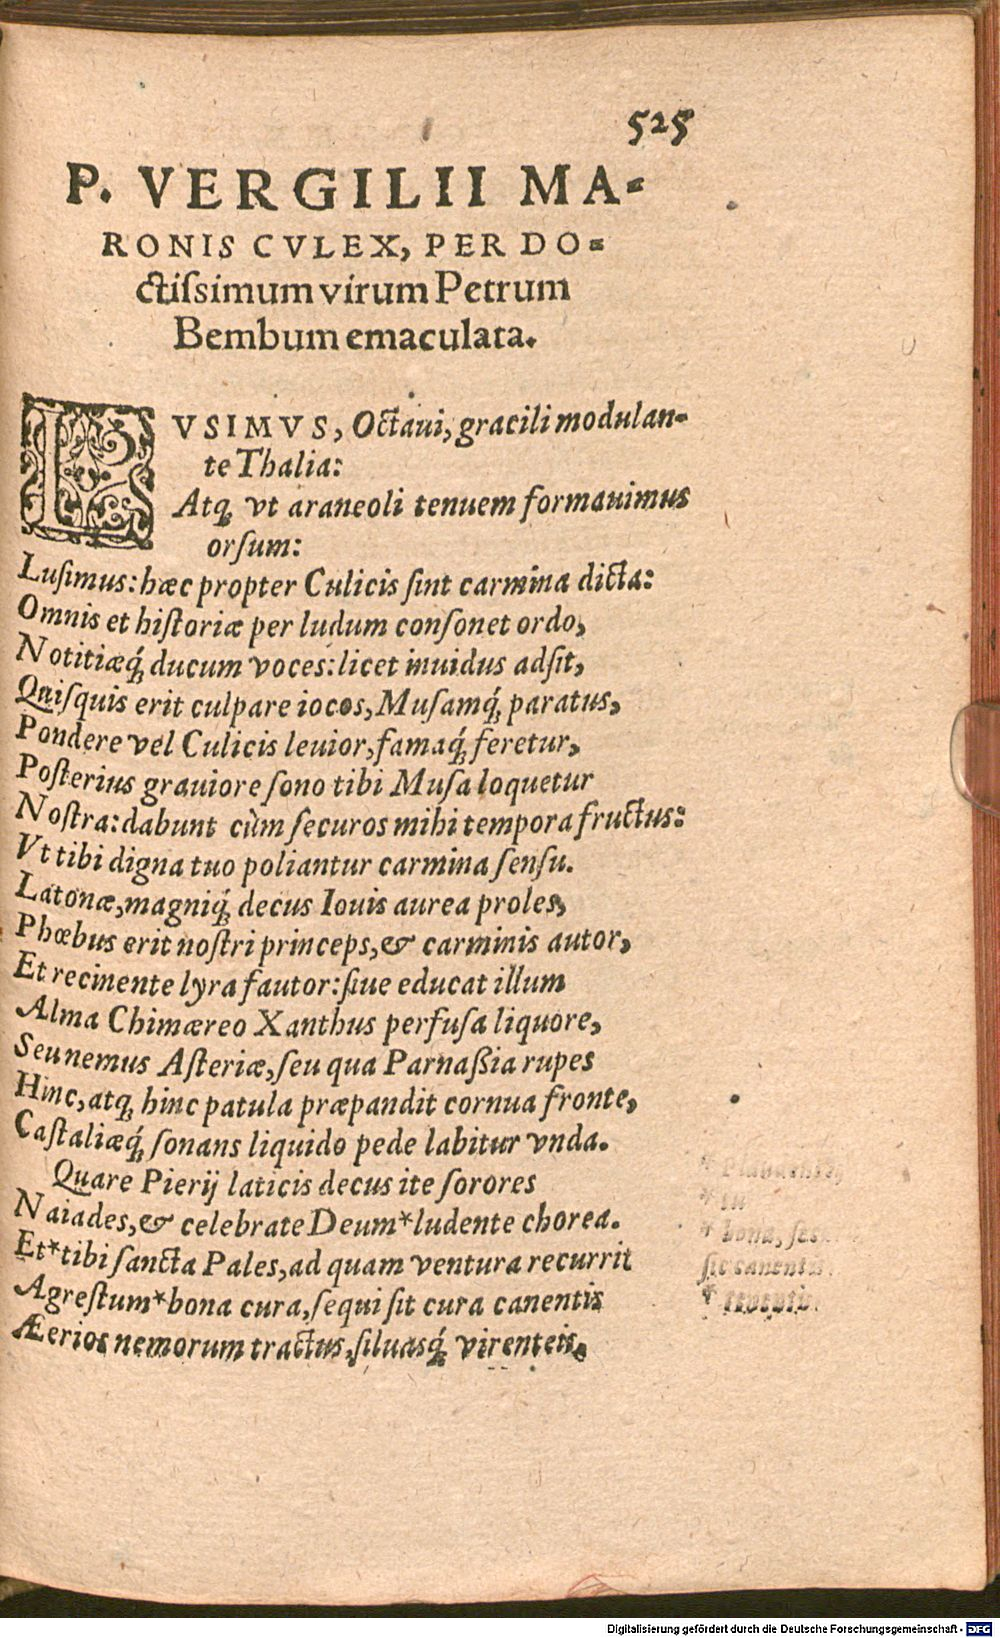 525
P. VERGILII MA-
RONIS CVLEX, PER DO-
ctiſsimum virum Petrum
Bembum emaculata.
LVSIMVS, Octaui, gracili modulan-
te Thalia:
Atq; vt araneoli tenuem formauimus
orſum:
Luſimus: hæc propter Culicis ſint carmina dicta:
Omnis et hiſtoriæ per ludum conſonet ordo,
Notitiæq́; ducum voces: licet inuidus adſit,
Quiſquis erit culpare iocos, Muſamq́; paratus,
Pondere vel Culicis leuior, famaq́; feretur,
Poſterius grauiore ſono tibi Muſa loquetur
Noſtra: dabunt cùm ſecuros mihi tempora fructus:
Vt tibi digna tuo poliantur carmina ſenſu.
Latonæ, magniq́; decus Iouis aurea proles,
Phœbus erit noſtri princeps, & carminis autor,
Et recinente lyra fautor: ſiue educat illum
Alma Chimæreo Xanthus perfuſa liquore,
Seu nemus Aſteriæ, ſeu qua Parnaßia rupes
Hinc, atq; hinc patula præpandit cornua fronte,
Caſtaliæq́; ſonans liquido pede labitur vnda.
Quare Pierij laticis decus ite ſorores
Naiades, & celebrate Deum*ludente chorea.
Et*tibi ſancta Pales, ad quam ventura recurrit
Agreſtum*bona cura, ſequi ſit cura canentis
Æerios nemorum tractus, ſiluasq́; virenteis,
* tu
* bona, ſe
ſit canentis
Digitalisierung gefördert durch die Deutsche Forschungsgemeinschaft - DFG